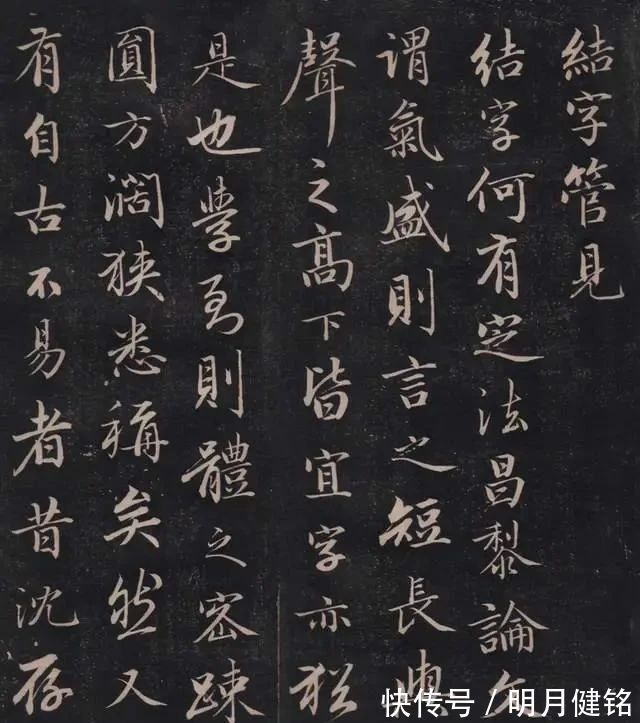 結字管見
結字何有定法昌黎論文
謂氣盛則言之短長與
聲之髙下皆宜字亦猶
是也學到則體之密踈
圓方濶狹悉稱矣然又
有自古不易者昔沈存
快传号 / 明月健铭